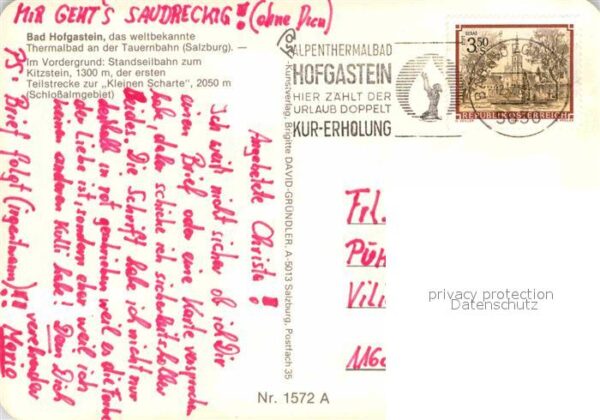 MIR GEHT'S SAUDRECKIG! (ohne Dich)
Bad Hofgastein, das weltbekannte
Thermalbad an der Tauernbahn (Salzburg). —
Im Vordergrund: Standseilbahn zum
Kitzstein, 1300 m, der ersten
Teilstrecke zur „Kleinen Scharte", 2050 m
(Schloßalmgebiet)
Angebetete Christa!
Ich weiß nicht sicher ob ich Dir
einen Brief oder eine Karte versprochen
habe, daher schicke ich sicherheitshalber
beides. Die Schrift habe ich nicht nur
deshalb in rot geschrieben weil es die Farbe
der Liebe ist, sondern eher weil ich
keinen anderen Kulli habe! Dein Dich
verehrender
PS: Brief folgt (irgentwann)!!
Kunstverlag, Brigitte DAVID-GRÜNDLER, A-5013 Salzburg, Postfach 35
ALPENTHERMALBAD
HOFGASTEIN
HIER ZÄHLT DER
URLAUB DOPPELT
KUR-ERHOLUNG
3.50
REPUBLIK ÖSTERREICH
5630
Frl.
1160
Nr. 1572 A
privacy protection
Datenschutz